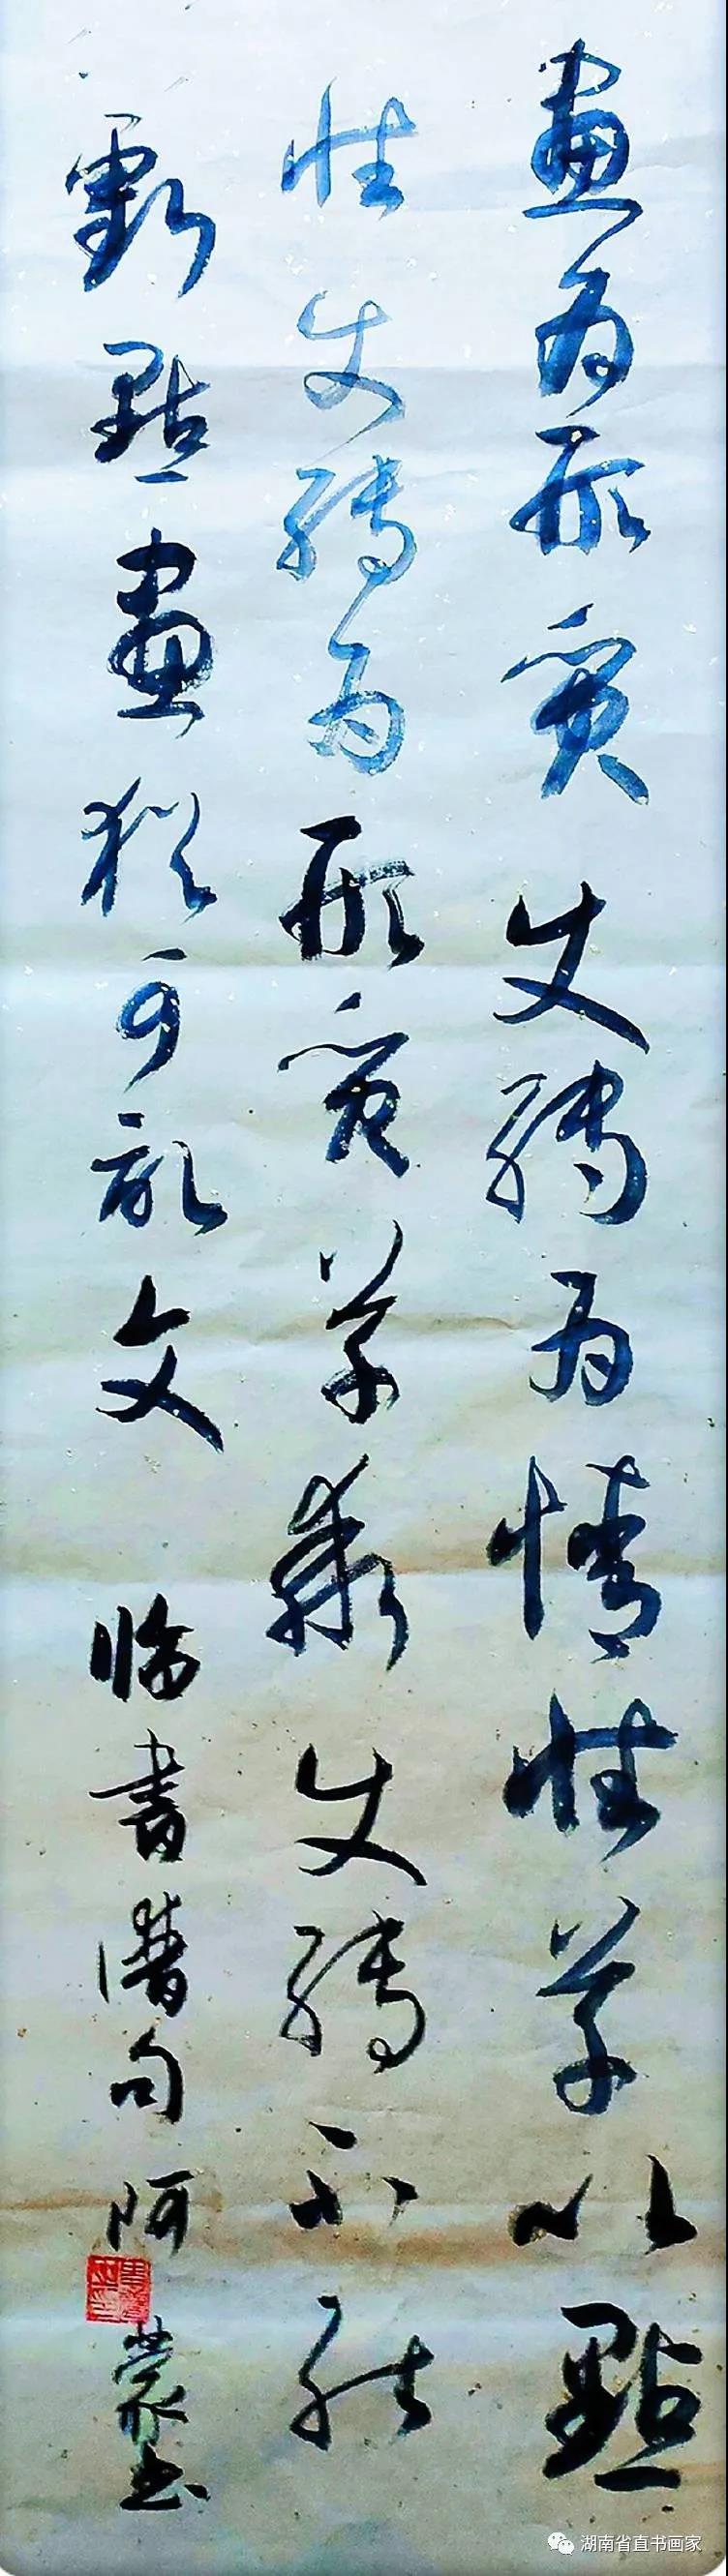 畫为形質使轉为情性草以點
性使轉为形質草乖使轉不能
虧點畫猶可記文 临書譜句 阿蒙书
湖南省直书画家